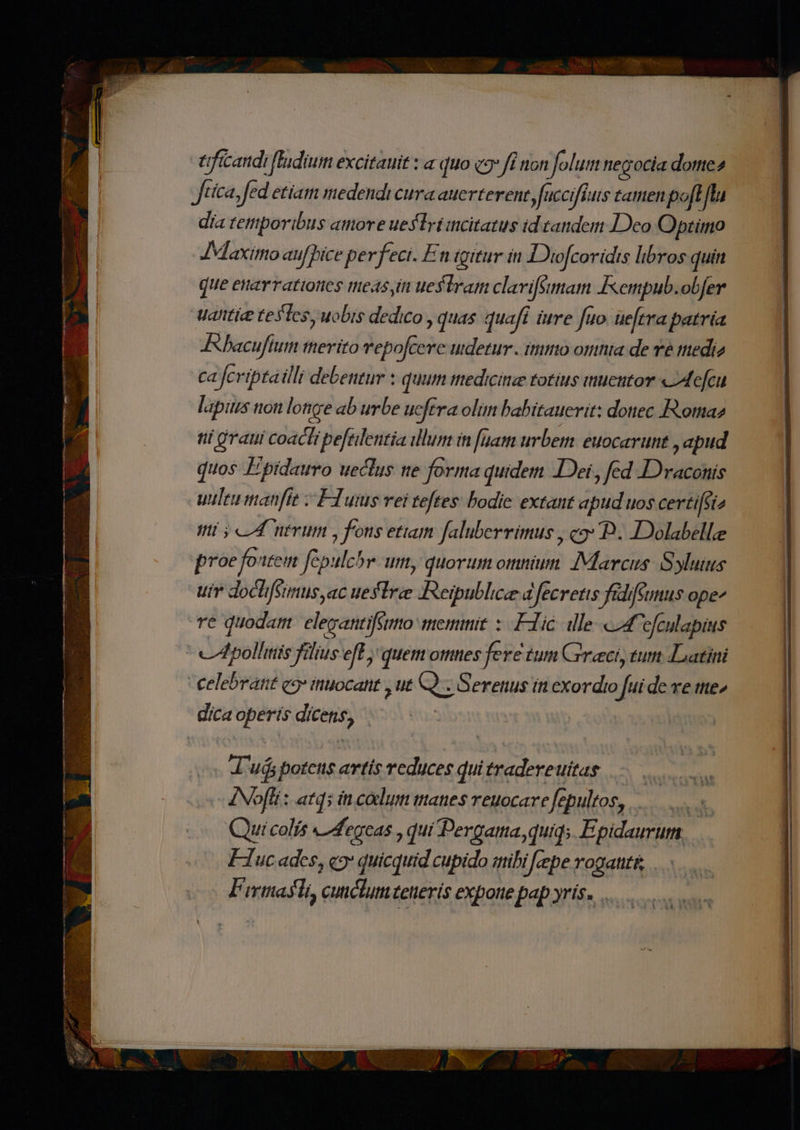 tificandi ſtudium excitauit : a quo & ſi non ſolum negocia dome⸗
ſtica, ſed etiam medendi cura auerterent, ſucciſiuis tamen poſt ſtu
dia temporibus amore ueſtri incitatus id tandem Deo Optimo
Maximo auſpice perfeci. En igitur in Dioſcoridis libros quin
que enarrationes meas, in ueſtram clariſsimam Rempub. obſer
uantiæ teſtes, uobis dedico, quas quaſi iure ſuo ueſtra patria
Rhacuſium merito repoſcere uidetur. immo omnia de re medi⸗
ca ſcripta illi debentur : quum medicinæ totius inuentor Aeſcu
lapius non longe ab urbe ueſtra olim habitauerit: donec Roma⸗
ni graui coacti peſtilentia illum in ſuam urbem euocarunt, apud
quos Epidauro uectus ne forma quidem Dei, ſed Draconis
uultu manſit : Huius rei teſtes hodie extant apud uos certiſsi⸗
mi ; Antrum, fons etiam ſaluberrimus, & P. Dolabellæ
proe fontem ſepulchrum, quorum omnium Marcus Syluius
uir doctiſsimus, ac ueſtræ Reipublicæ à ſecretis fidiſsimus ope⸗
re quodam elegantiſsimo meminit : Hic ille Aeſculapius
Apollinis filius eſt, quem omnes fere tum Græci, tum Latini
celebrant & inuocant, ut Q. Serenus in exordio ſui de re me⸗
dica operis dicens,
Tuq; potens artis reduces qui tradere uitas
Noſti : atq; in cœlum manes reuocare ſepultos,
Qui colis Aegeas, qui Pergama, quiq; Epidaurum
Huc ades, & quicquid cupido mihi ſæpe roganti
Firmaſti, cunctum teneris expone papyris.